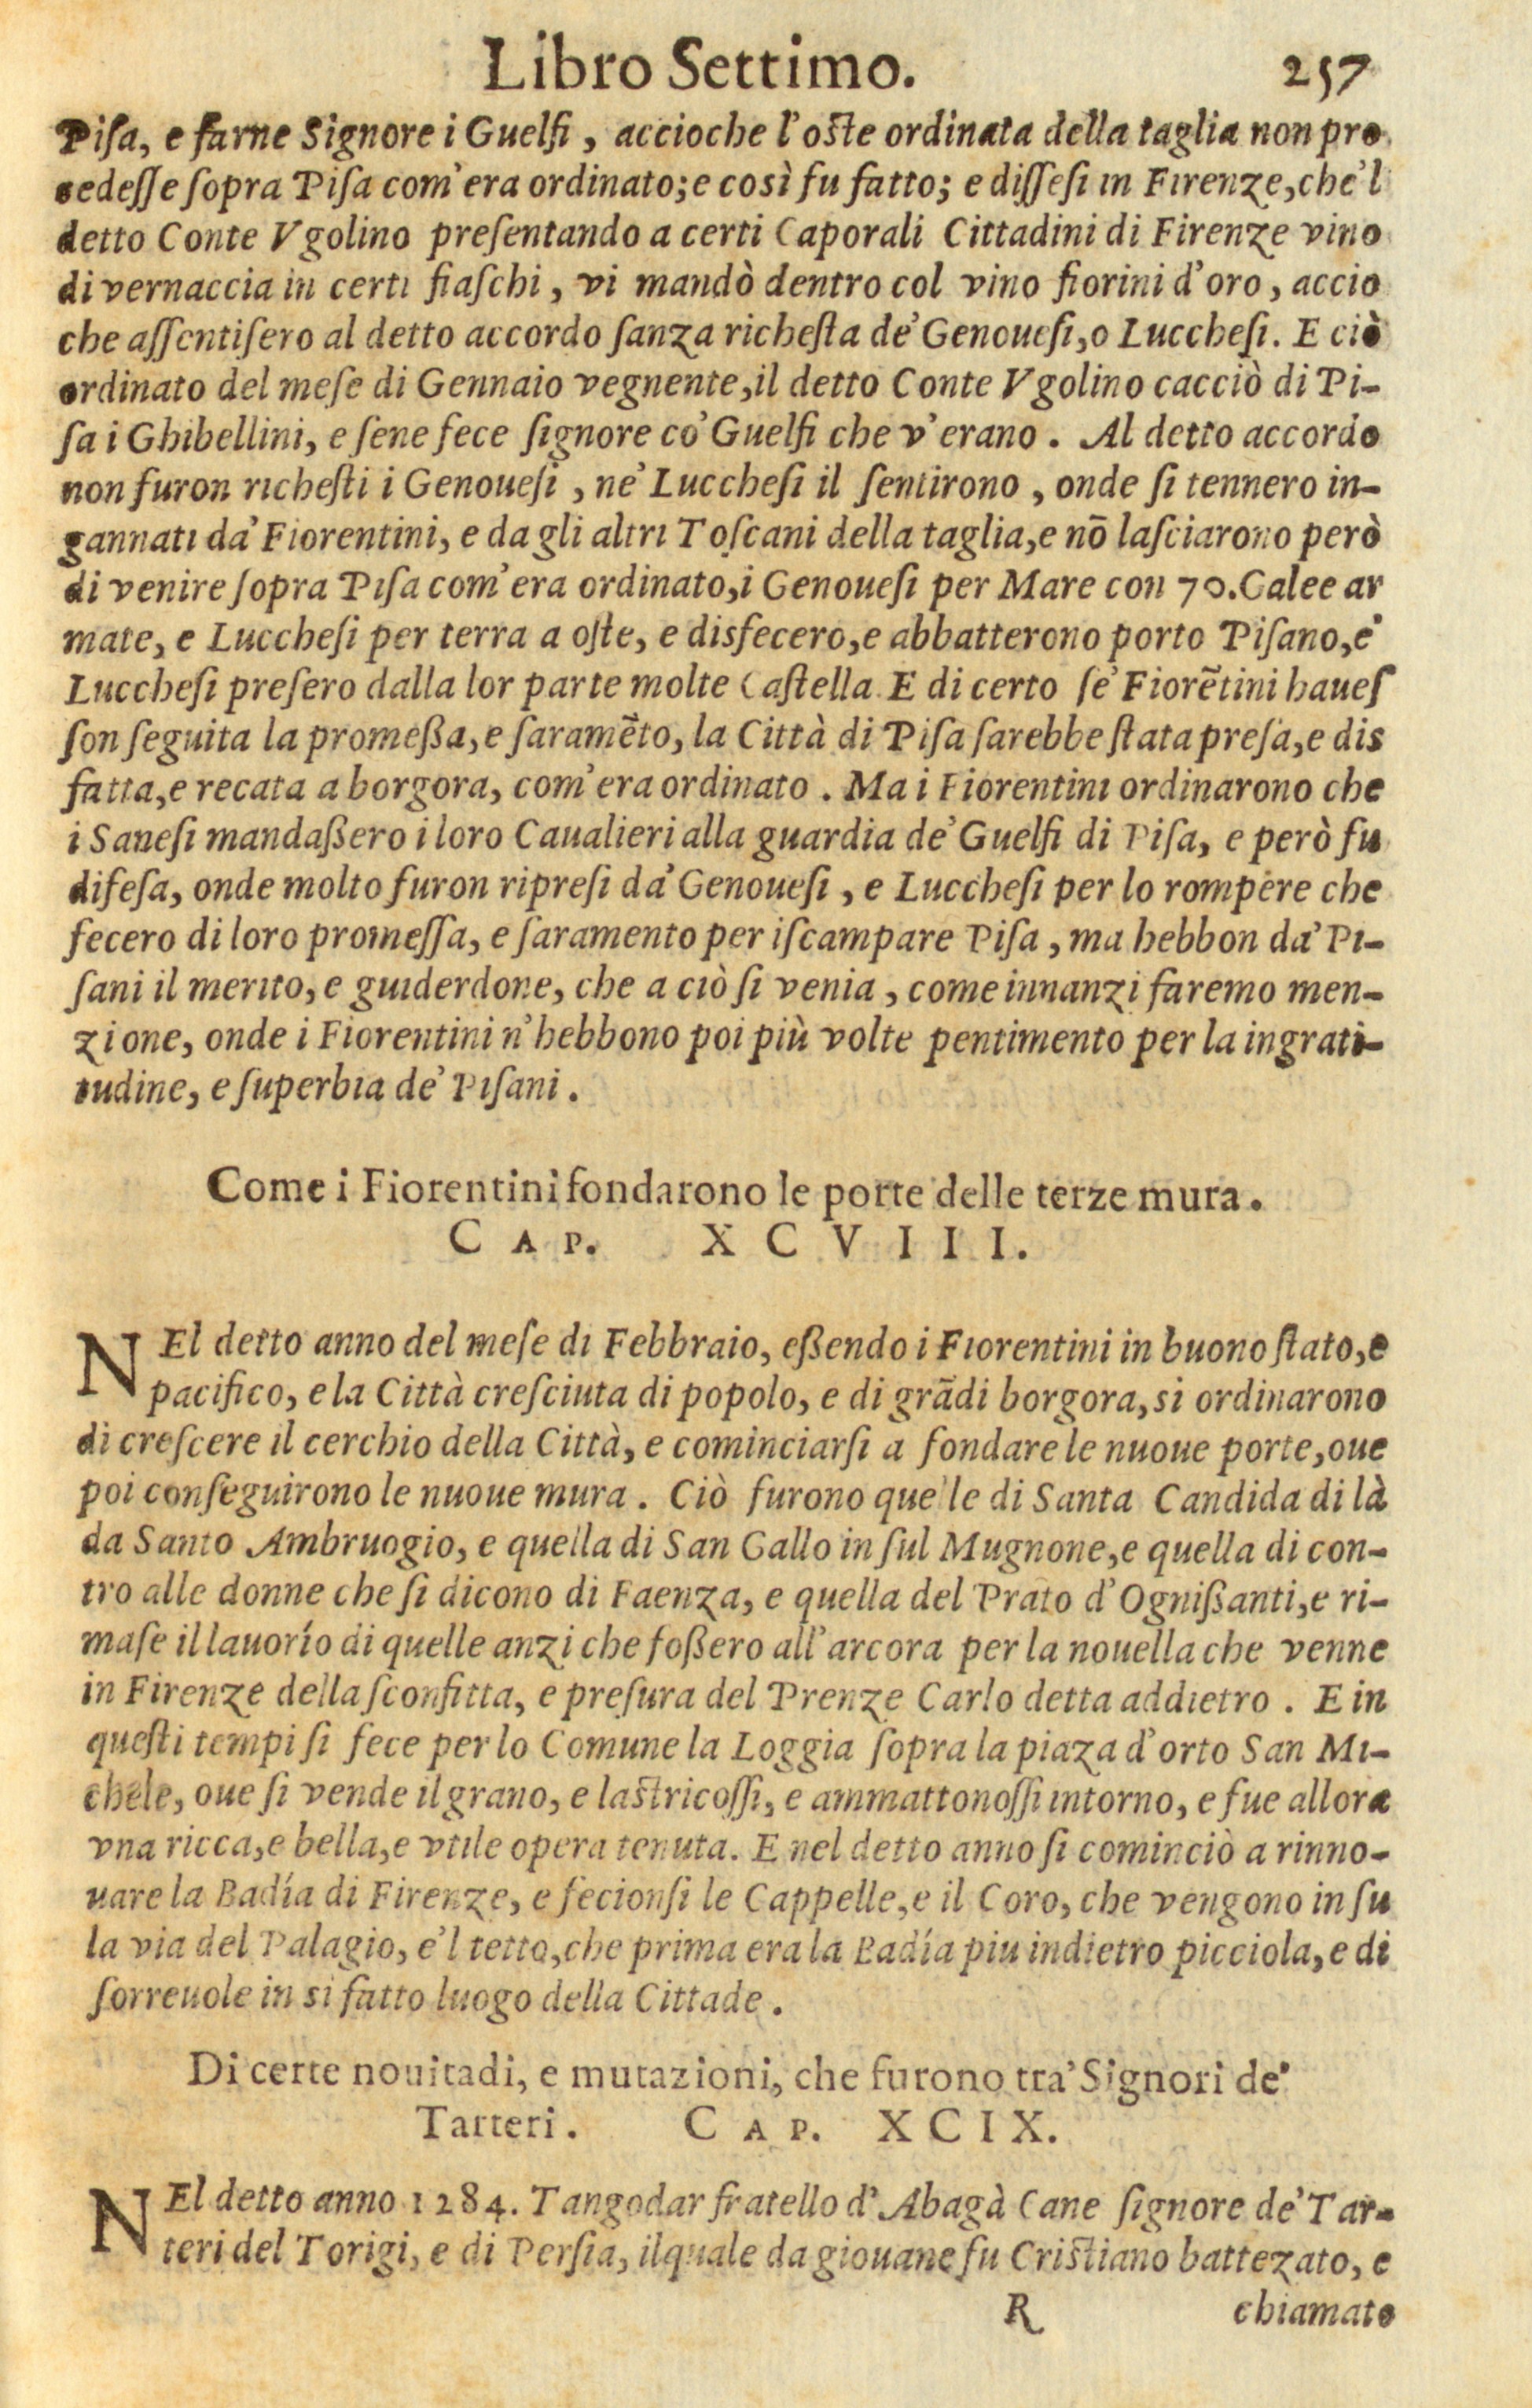 Libro Settimo. 257
Piſa, e farne Signore i Guelfi, accioche l'oſte ordinata della taglia non pro
cedeſſe ſopra Piſa com'era ordinato; e così fu fatto; e diſſeſi in Firenze, che'l
detto Conte Vgolino preſentando a certi Caporali Cittadini di Firenze vino
di vernaccia in certi fiaſchi, vi mandò dentro col vino fiorini d'oro, accio
che aſſentiſero al detto accordo ſanza richeſta de' Genoueſi, o Luccheſi. E ciò
ordinato del meſe di Gennaio vegnente, il detto Conte Vgolino cacciò di Pi-
ſa i Ghibellini, e ſene fece ſignore co' Guelfi che v'erano. Al detto accordo
non furon richeſti i Genoueſi, ne' Luccheſi il ſentirono, onde ſi tennero in-
gannati da' Fiorentini, e da gli altri Toſcani della taglia, e nō laſciarono però
di venire ſopra Piſa com'era ordinato, i Genoueſi per Mare con 70. Galee ar
mate, e Luccheſi per terra a oſte, e disfecero, e abbatterono porto Piſano, e'
Luccheſi preſero dalla lor parte molte Caſtella. E di certo ſe' Fiorētini haueſ
ſon ſeguita la promeßa, e ſaramēto, la Città di Piſa ſarebbe ſtata preſa, e dis
fatta, e recata a borgora, com'era ordinato. Ma i Fiorentini ordinarono che
i Saneſi mandaßero i loro Caualieri alla guardia de' Guelfi di Piſa, e però fu
difeſa, onde molto furon ripreſi da' Genoueſi, e Luccheſi per lo rompere che
fecero di loro promeſſa, e ſaramento per iſcampare Piſa, ma hebbon da' Pi-
ſani il merito, e guiderdone, che a ciò ſi venia, come innanzi faremo men-
zione, onde i Fiorentini n'hebbono poi più volte pentimento per la ingrati-
tudine, e ſuperbia de' Piſani.
Come i Fiorentini fondarono le porte delle terze mura.
CAP. XCVIII.
NEl detto anno del meſe di Febbraio, eßendo i Fiorentini in buono ſtato, e
pacifico, e la Città creſciuta di popolo, e di grādi borgora, si ordinarono
di creſcere il cerchio della Città, e cominciarſi a fondare le nuoue porte, oue
poi conſeguirono le nuoue mura. Ciò furono quelle di Santa Candida di là
da Santo Ambruogio, e quella di San Gallo in ſul Mugnone, e quella di con-
tro alle donne che ſi dicono di Faenza, e quella del Prato d'Ognißanti, e ri-
maſe il lauorío di quelle anzi che foßero all'arcora per la nouella che venne
in Firenze della ſconfitta, e preſura del Prenze Carlo detta addietro. E in
queſti tempi ſi fece per lo Comune la Loggia ſopra la piaza d'orto San Mi-
chele, oue ſi vende il grano, e laſtricoſſi, e ammattonoſſi intorno, e fue allora
vna ricca, e bella, e vtile opera tenuta. E nel detto anno ſi cominciò a rinno-
uare la Badía di Firenze, e fecionſi le Cappelle, e il Coro, che vengono in ſu
la via del Palagio, e'l tetto, che prima era la Badía piu indietro picciola, e di
ſorreuole in si fatto luogo della Cittade.
Di certe nouitadi, e mutazioni, che furono tra' Signori de'
Tarteri. CAP. XCIX.
NEl detto anno 1284. Tangodar fratello d'Abagà Cane ſignore de' Tar-
teri del Torigi, e di Perſia, ilquale da giouane fu Criſtiano battezato, e
R chiamato